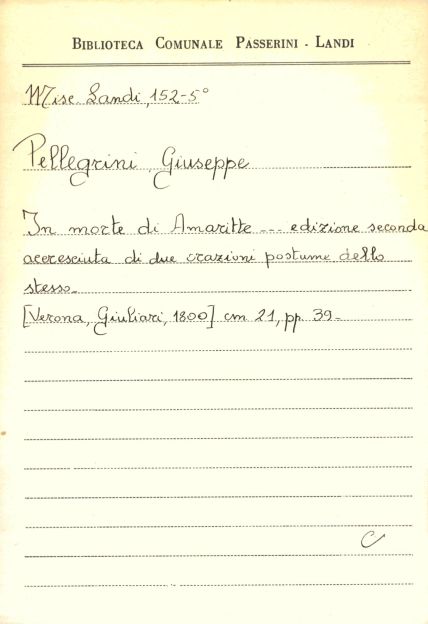 BIBLIOTECA COMUNALE PASSERINI - LANDI
Misc. Landi, 152-5°
Pellegrini, Giuseppe
In morte di Amaritte ... edizione seconda
accresciuta di due orazioni postume dello
stesso.
[Verona, Giuliari, 1800] cm 21, pp. 39.
C